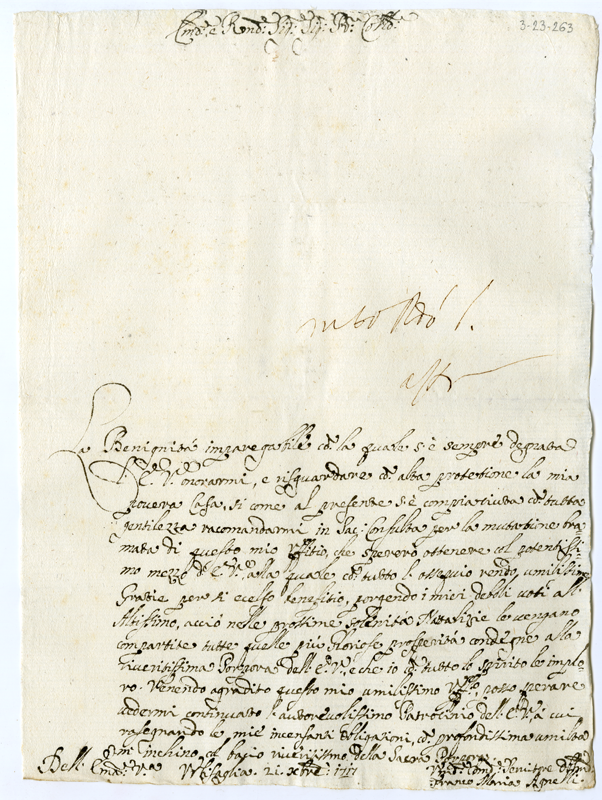 3-23-263
Em.º e Rmd.º Sig.r Sig.r Pr.e Coll.mo
La Benignità impareggabile cō la quale s'è sempre degnata
l'E.V. onorarmi, e risguardare cō alta protetione la mia
povera Casa, si come al presente s'è compiaciuta cō tutta
gentilezza racomandarmi in Sac: Consulta per la mutatione bra
mata di questo mio Offitio, che sperero ottenere col potentissi-
mo mezzo d. E.V. alla quale cō tutto l'ossequio rendo umilissime
Gratie per sì ecelso benefitio, porgendo i miei debili voti all'
Altissimo, acciò nelle prossime solenità Natalizie le vengano
compartite tutte quelle più gloriose prosperità condegne alla
riveritissima Porpora dell'E.V. e che io cō tutto lo spirito le implo
ro. Venendo agradito questo mio umilissimo posso sperare
vedermi continuato l'autorevolissimo Patrocinio dell'E.V. à cui
rasegnando le mie incensanti obligationi, cō profondissima umiltà
m'inchino, al bacio riveritissimo della Sacra Porpora
Dell'Em.ª V.ª Urbisaglia 21 Xbre
Franco Maria Agnelli